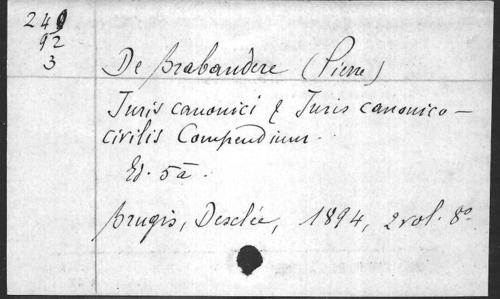 249
92
3
De Brabandere (Pierre)
Juris canonici & Juris canonico-
civilis Compendium.
Ed. 5a.
Brugis, Desclée, 1894, 2 vol. 8o